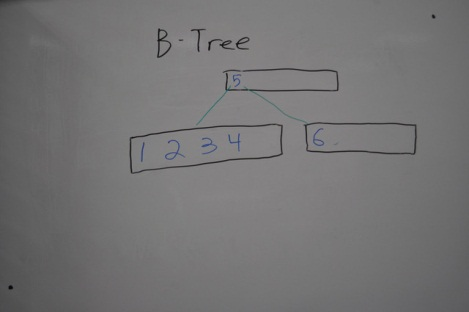 B-Tree
5
1 2 3 4
6.